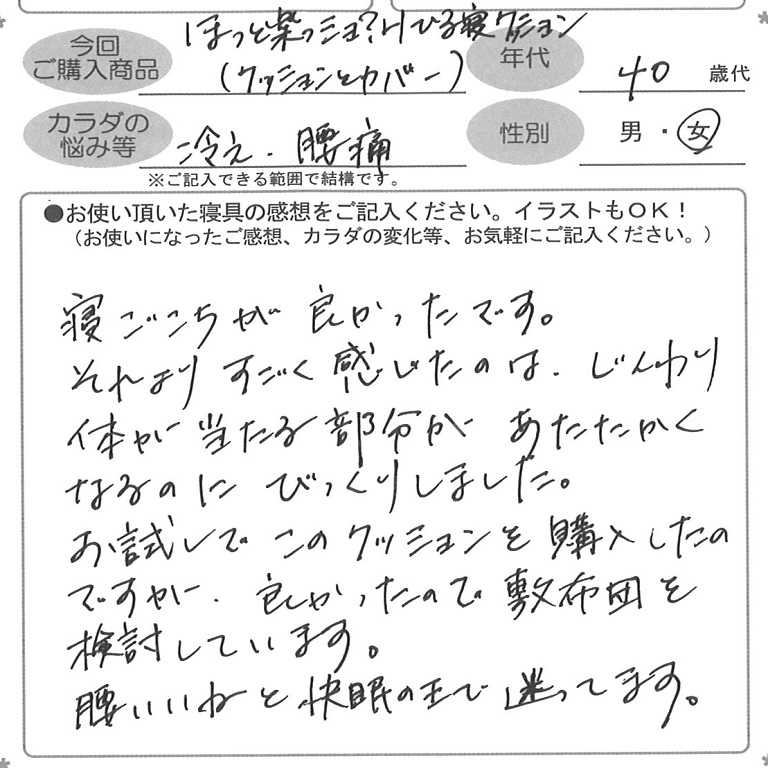 今回
ご購入商品
ほっと紫っショ?けひる寝クッション
(クッションとカバー)
年代
40 歳代
カラダの
悩み等
冷え・腰痛
※ご記入できる範囲で結構です。
性別
男・女
●お使い頂いた寝具の感想をご記入ください。イラストもOK!
(お使いになったご感想、カラダの変化等、お気軽にご記入ください。)
寝ごこちが良かったです。
それよりすごく感じたのは、じんわり
体が当たる部分があたたかく
なるのにびっくりしました。
お試しでこのクッションを購入したの
ですが、良かったので敷布団を
検討しています。
腰いいねと快眠の王で迷ってます。